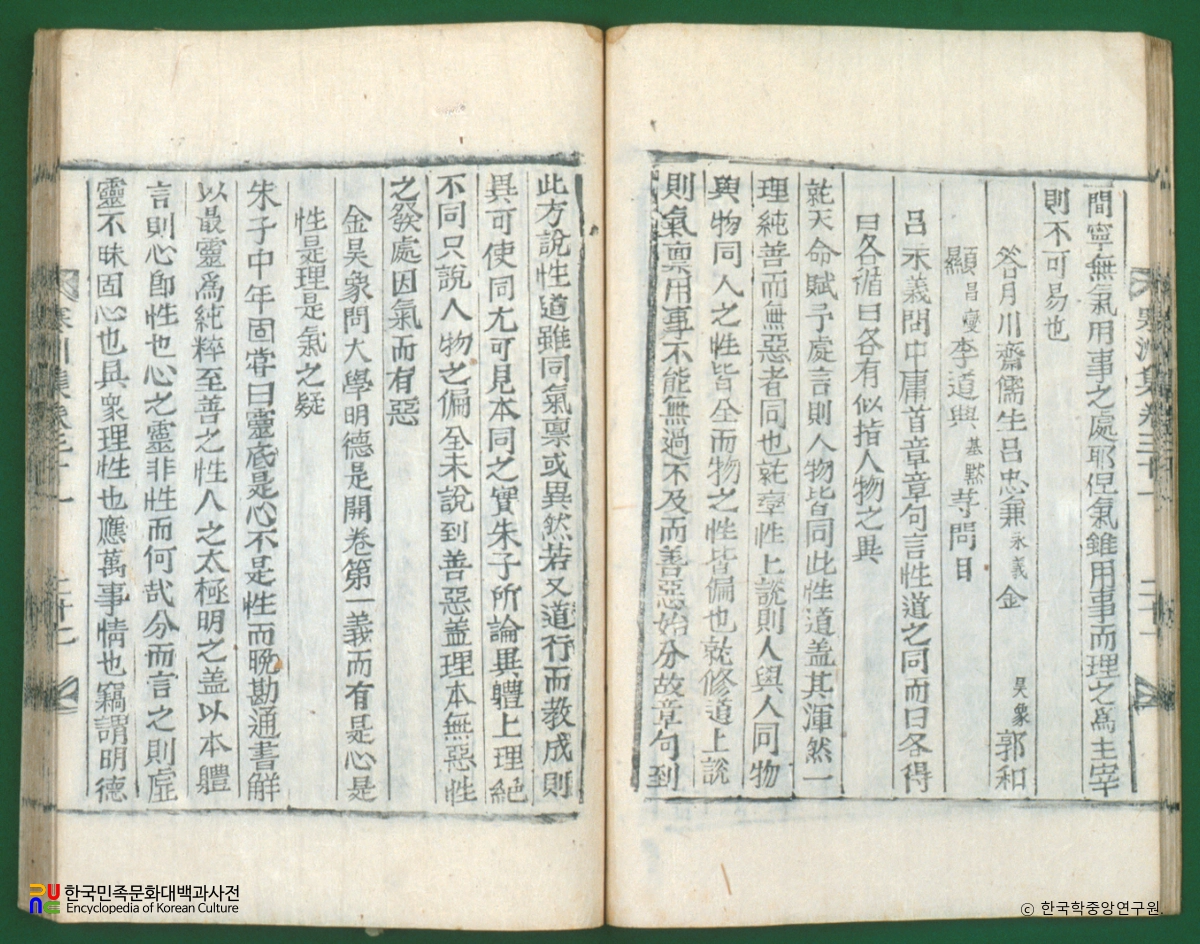 間寧無氣用事之處耶但氣雖用事而理之爲主宰
則不可易也
答月川齋儒生呂忠兼永義金昊象郭和
顯昌燮李道與基黙䓁問目
呂永義問中庸首章章句言性道之同而曰各得
曰各循曰各有似指人物之異
就天命賦予處言則人物皆同此性道盖其渾然一
理純善而無惡者同也就率性上說則人與人同物
與物同人之性皆全而物之性皆偏也就修道上說
則氣禀用事不能無過不及而善惡始分故章句到
此方說性道雖同氣禀或異然若又道行而教成則
異可使同尤可見本同之實朱子所論異軆上理絶
不同只說人物之偏全未說到善惡盖理本無惡性
之發處因氣而有惡
金昊象問大學明德是開卷第一義而有是心是
性是理是氣之疑
朱子中年固甞曰靈底是心不是性而晩勘通書解
以最靈爲純粹至善之性人之太極明之盖以本軆
言則心即性也心之靈非性而何㢤分而言之則虛
靈不昧固心也具衆理性也應萬事情也竊謂明德
한국민족문화대백과사전
Encyclopedia of Korean Culture
© 한국학중앙연구원